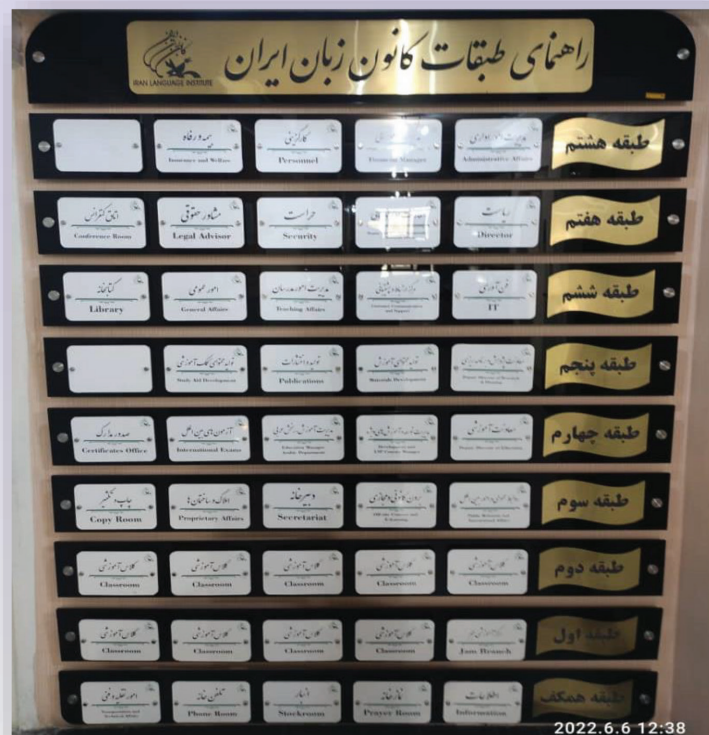 راهنمای طبقات کانون زبان ایران
IRAN LANGUAGE INSTITUTE
طبقه هشتم
Administrative Affairs
Financial Manager
کارگزینی
Personnel
بیمه و رفاه
Insurance and Welfare
طبقه هفتم
ریاست
Director
حراست
Security
مشاور حقوقی
Legal Advisor
اتاق کنفرانس
Conference Room
طبقه ششم
فن آوری
IT
Customer Communication
and Support
مدیریت امور مدرسان
Teaching Affairs
امور عمومی
General Affairs
کتابخانه
Library
طبقه پنجم
Deputy Director of Research
& Planning
تولید محتوای آموزش
Materials Development
تولید و انتشارات
Publications
تولید محتوای کمک آموزشی
Study Aid Development
طبقه چهارم
معاونت آموزشی
Deputy Director of Education
Education Manager
آزمون های بین الملل
International Exams
صدور مدارک
Certificates Office
طبقه سوم
Public Relations and
International Affairs
دبیرخانه
Secretariat
املاک و ساختمان ها
Proprietary Affairs
چاپ و تکثیر
Copy Room
طبقه دوم
کلاس آموزشی
Classroom
کلاس آموزشی
Classroom
کلاس آموزشی
Classroom
کلاس آموزشی
Classroom
کلاس آموزشی
Classroom
طبقه اول
Jam Branch
کلاس آموزشی
Classroom
کلاس آموزشی
Classroom
کلاس آموزشی
Classroom
کلاس آموزشی
Classroom
طبقه همکف
اطلاعات
Information
نمازخانه
Prayer Room
انبار
Stockroom
تلفن خانه
Phone Room
امور نقلیه و فنی
Transportation and
Technical Affairs
2022.6.6 12:38